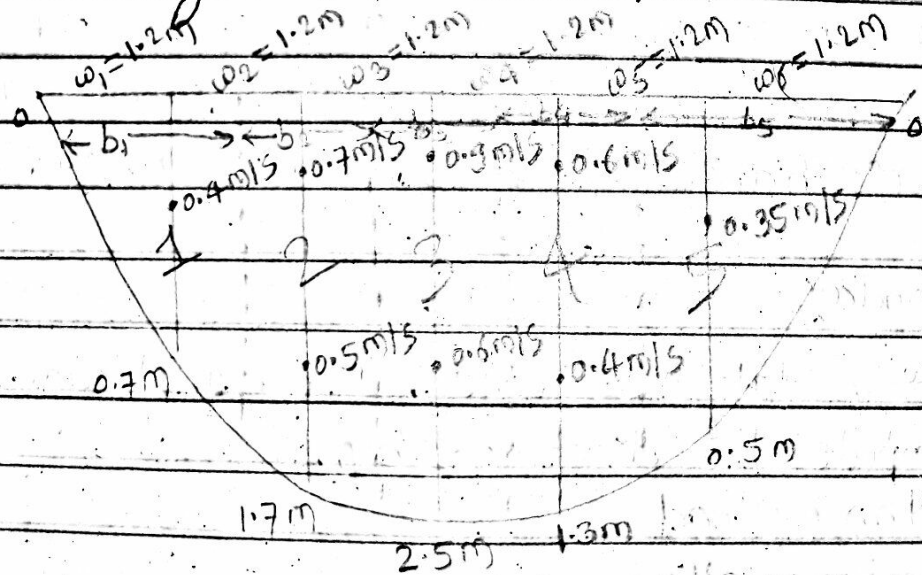 w1=1.2m w2=1.2m w3=1.2m w4=1.2m w5=1.2m w6=1.2m
0 b1 b b5 0
0.4m/s 0.7m/s 0.9m/s 0.6m/s 0.35m/s
1 2 3 4 5
0.5m/s 0.6m/s 0.4m/s
0.7m
0.5m
1.7m 2.5m 1.3m